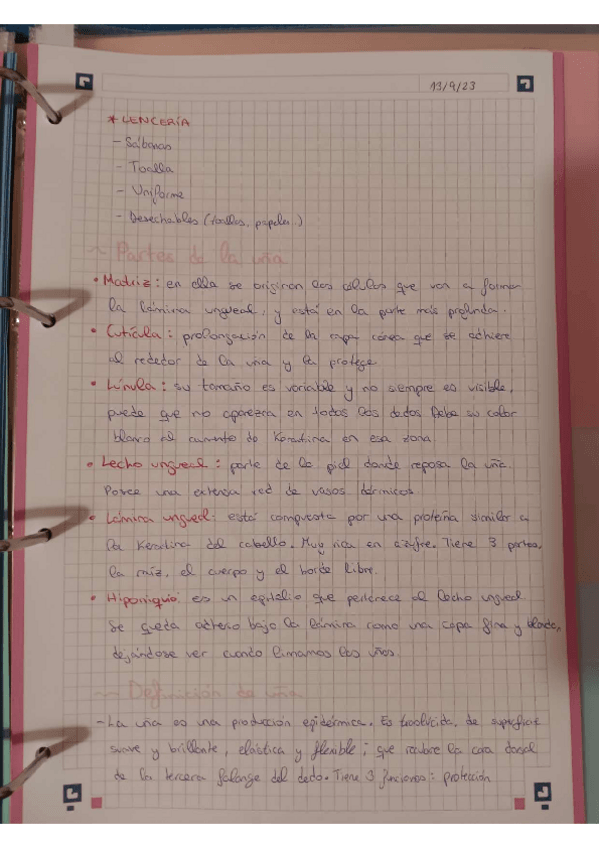 13/9/23
* LENCERÍA
- Sábanas
- Toalla
- Uniforme
- Desechables (toallas, papeles..)
~ Partes de la uña
• Matriz: en ella se originan las células que van a formar
la lámina ungueal, y está en la parte más profunda.
• Cutícula: prolongación de la capa córnea que se adhiere
al rededor de la uña y la protege.
• Lúnula: su tamaño es variable y no siempre es visible,
puede que no aparezca en todos los dedos. Debe su color
blanco al aumento de Keratina en esa zona.
• Lecho ungueal: parte de la piel donde reposa la uña.
Posee una extensa red de vasos dérmicos.
• Lámina ungueal: está compuesta por una proteína similar a
la Keratina del cabello. Muy rica en azufre. Tiene 3 partes,
la raíz, el cuerpo y el borde libre.
• Hiponiquio: es un epitelio que pertenece al lecho ungueal.
Se queda adherido bajo la lámina como una capa fina y blanda,
dejándose ver cuando limamos las uñas.
~ Definición de uña
- La uña es una producción epidérmica. Es traslúcida, de superficie
suave y brillante, elástica y flexible; que recubre la cara dorsal
de la tercera falange del dedo. Tiene 3 funciones: protección